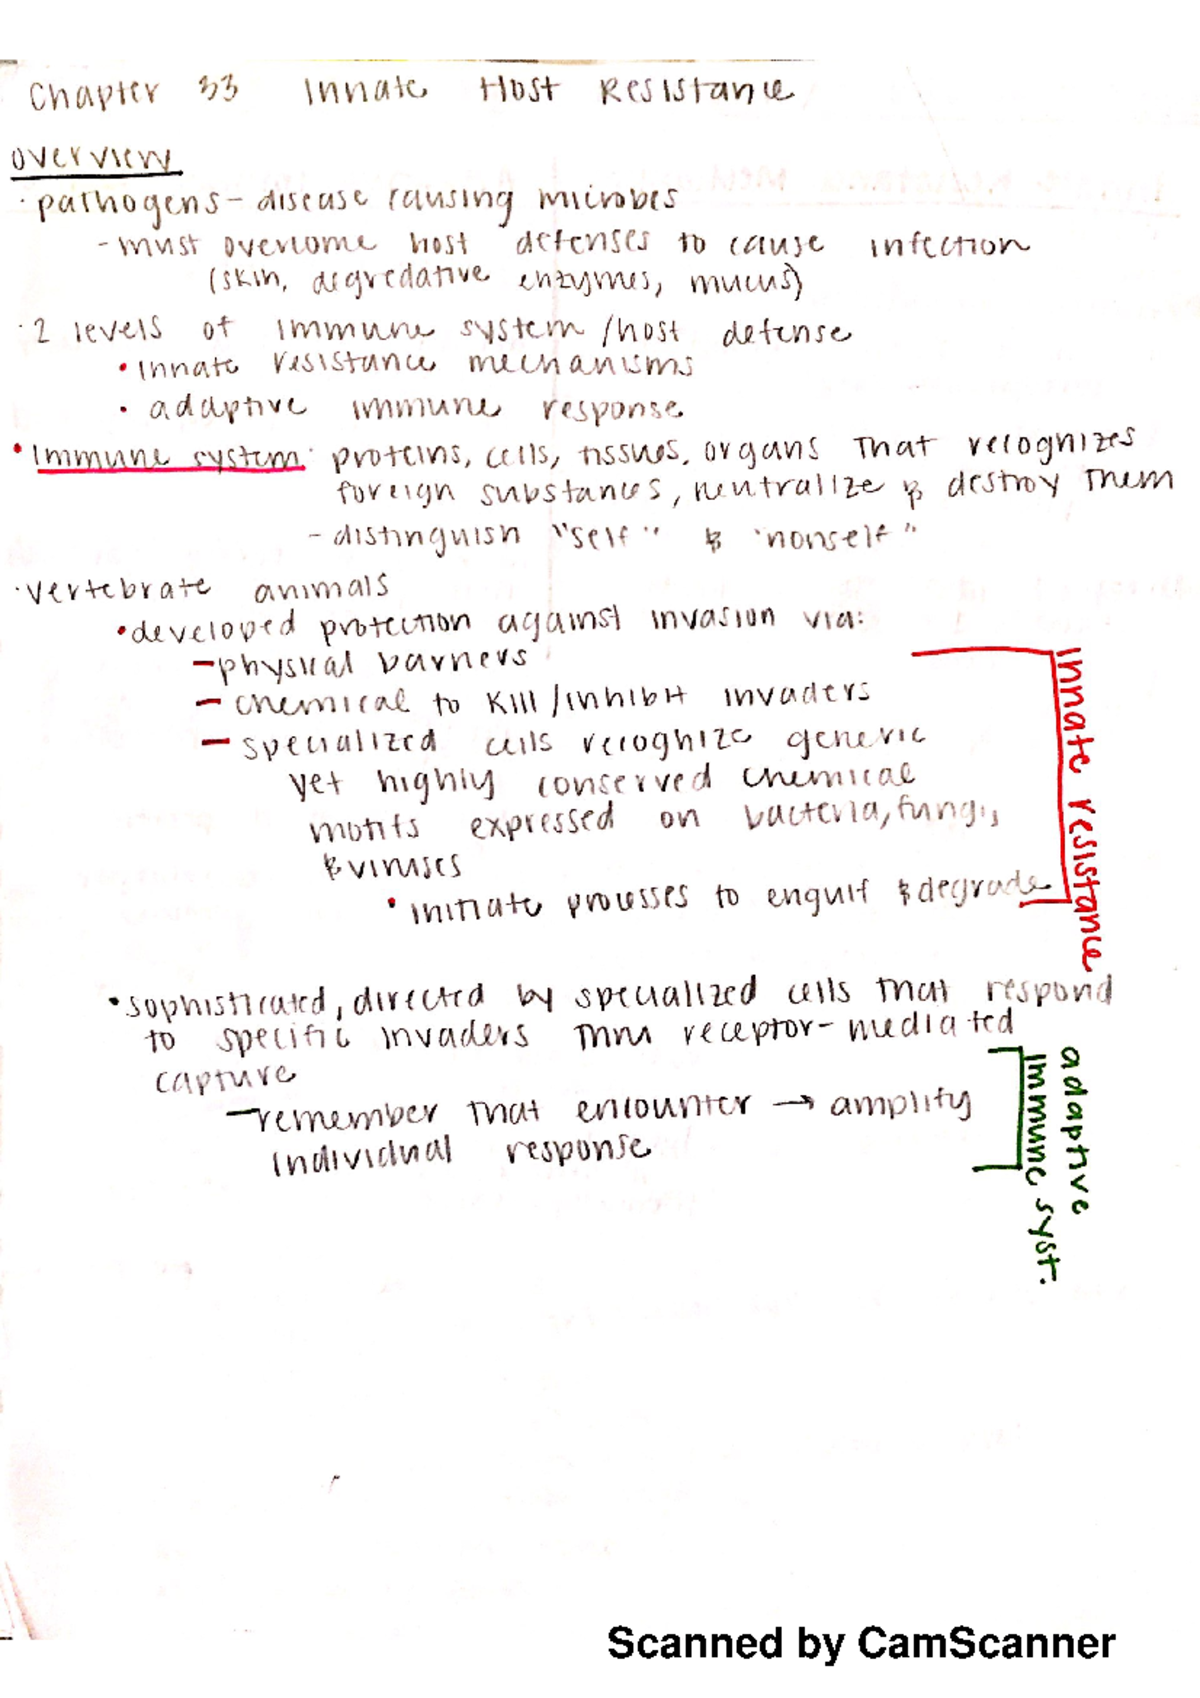 Chapter 33 Innate Host Resistance
overview
· pathogens - disease causing microbes
- must overcome host defenses to cause infection
(skin, degredative enzymes, mucus)
· 2 levels of immune system/host defense
• innate resistance mechanisms
• adaptive immune response
• Immune system: proteins, cells, tissues, organs that recognizes
foreign substances, neutralize & destroy them
- distinguish "self" & "nonself"
· vertebrate animals
• developed protection against invasion via:
- physical barriers
- chemical to kill/inhibit invaders
- specialized cells recognize generic
yet highly conserved chemical
motifs expressed on bacteria, fungi,
& viruses
• initiate processes to engulf & degrade
innate resistance
• sophisticated, directed by specialized cells that respond
to specific invaders thru receptor-mediated
capture
- remember that encounter → amplify
individual response
adaptive
immune syst.
Scanned by CamScanner